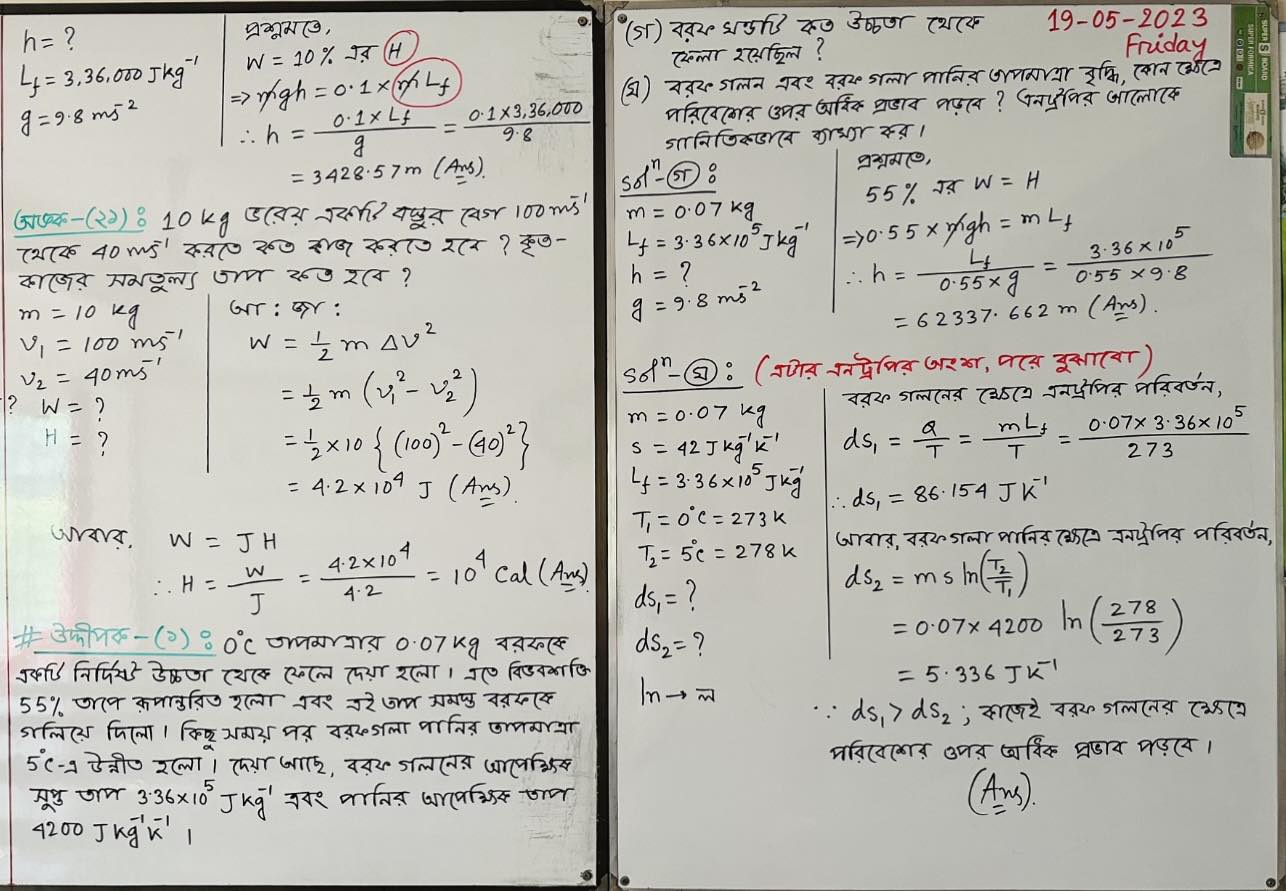 h = ?
L_f = 3,36,000 J kg⁻¹
g = 9.8 ms⁻²
প্রশ্নমতে,
W = 10% এর H
⇒ mgh = 0.1 × m L_f
∴ h = (0.1 × L_f)/g = (0.1 × 3,36,000)/9.8
= 3428.57 m (Ans).
অংক-(২১): 10 kg ভরের একটি বস্তুর বেগ 100 ms⁻¹
থেকে 40 ms⁻¹ করতে কত কাজ করতে হবে ? কৃত-
কাজের সমতুল্য তাপ কত হবে ?
m = 10 kg
v₁ = 100 ms⁻¹
v₂ = 40 ms⁻¹
? W = ?
H = ?
আ: জা:
W = ½ m Δv²
= ½ m (v₁² − v₂²)
= ½ × 10 {(100)² − (40)²}
= 4.2 × 10⁴ J (Ans).
আবার, W = JH
∴ H = W/J = (4.2 × 10⁴)/4.2 = 10⁴ Cal (Ans)
# উদ্দীপক-(১): 0°C তাপমাত্রার 0.07 kg বরফকে
একটি নির্দিষ্ট উচ্চতা থেকে ফেলে দেয়া হলো। এতে বিভবশক্তি
55% তাপে রূপান্তরিত হলো এবং এই তাপ সমস্ত বরফকে
গলিয়ে দিলো। কিছু সময় পর বরফগলা পানির তাপমাত্রা
5°C-এ উন্নীত হলো। দেয়া আছে, বরফ গলনের আপেক্ষিক
সুপ্ত তাপ 3.36×10⁵ J kg⁻¹ এবং পানির আপেক্ষিক তাপ
4200 J kg⁻¹ K⁻¹ ।
(গ) বরফ খন্ডটি কত উচ্চতা থেকে
ফেলা হয়েছিল ?
19-05-2023
Friday
SUPER BOARD
SUPER FORMICA
(ঘ) বরফ গলন এবং বরফ গলা পানির তাপমাত্রা বৃদ্ধি, কোন ক্ষেত্রে
পরিবেশের ওপর অধিক প্রভাব পড়বে ? এনট্রপির আলোকে
গানিতিকভাবে ব্যাখ্যা কর।
Solⁿ-(গ):
m = 0.07 kg
L_f = 3.36×10⁵ J kg⁻¹
h = ?
g = 9.8 ms⁻²
প্রশ্নমতে,
55% এর W = H
⇒ 0.55 × mgh = m L_f
∴ h = L_f/(0.55 × g) = (3.36 × 10⁵)/(0.55 × 9.8)
= 62337.662 m (Ans).
Solⁿ-(ঘ): (এটার এনট্রপির অংশ, পরে বুঝাবো)
m = 0.07 kg
s = 42 J kg⁻¹ K⁻¹
L_f = 3.36×10⁵ J kg⁻¹
T₁ = 0°C = 273 K
T₂ = 5°C = 278 K
ds₁ = ?
ds₂ = ?
ln → ল
বরফ গলনের ক্ষেত্রে এনট্রপির পরিবর্তন,
ds₁ = Q/T = mL_f/T = (0.07 × 3.36 × 10⁵)/273
∴ ds₁ = 86.154 J K⁻¹
আবার, বরফগলা পানির ক্ষেত্রে এনট্রপির পরিবর্তন,
ds₂ = m s ln(T₂/T₁)
= 0.07 × 4200 ln(278/273)
= 5.336 J K⁻¹
∵ ds₁ > ds₂ ; কাজেই বরফ গলনের ক্ষেত্রে
পরিবেশের ওপর অধিক প্রভাব পড়বে।
(Ans).